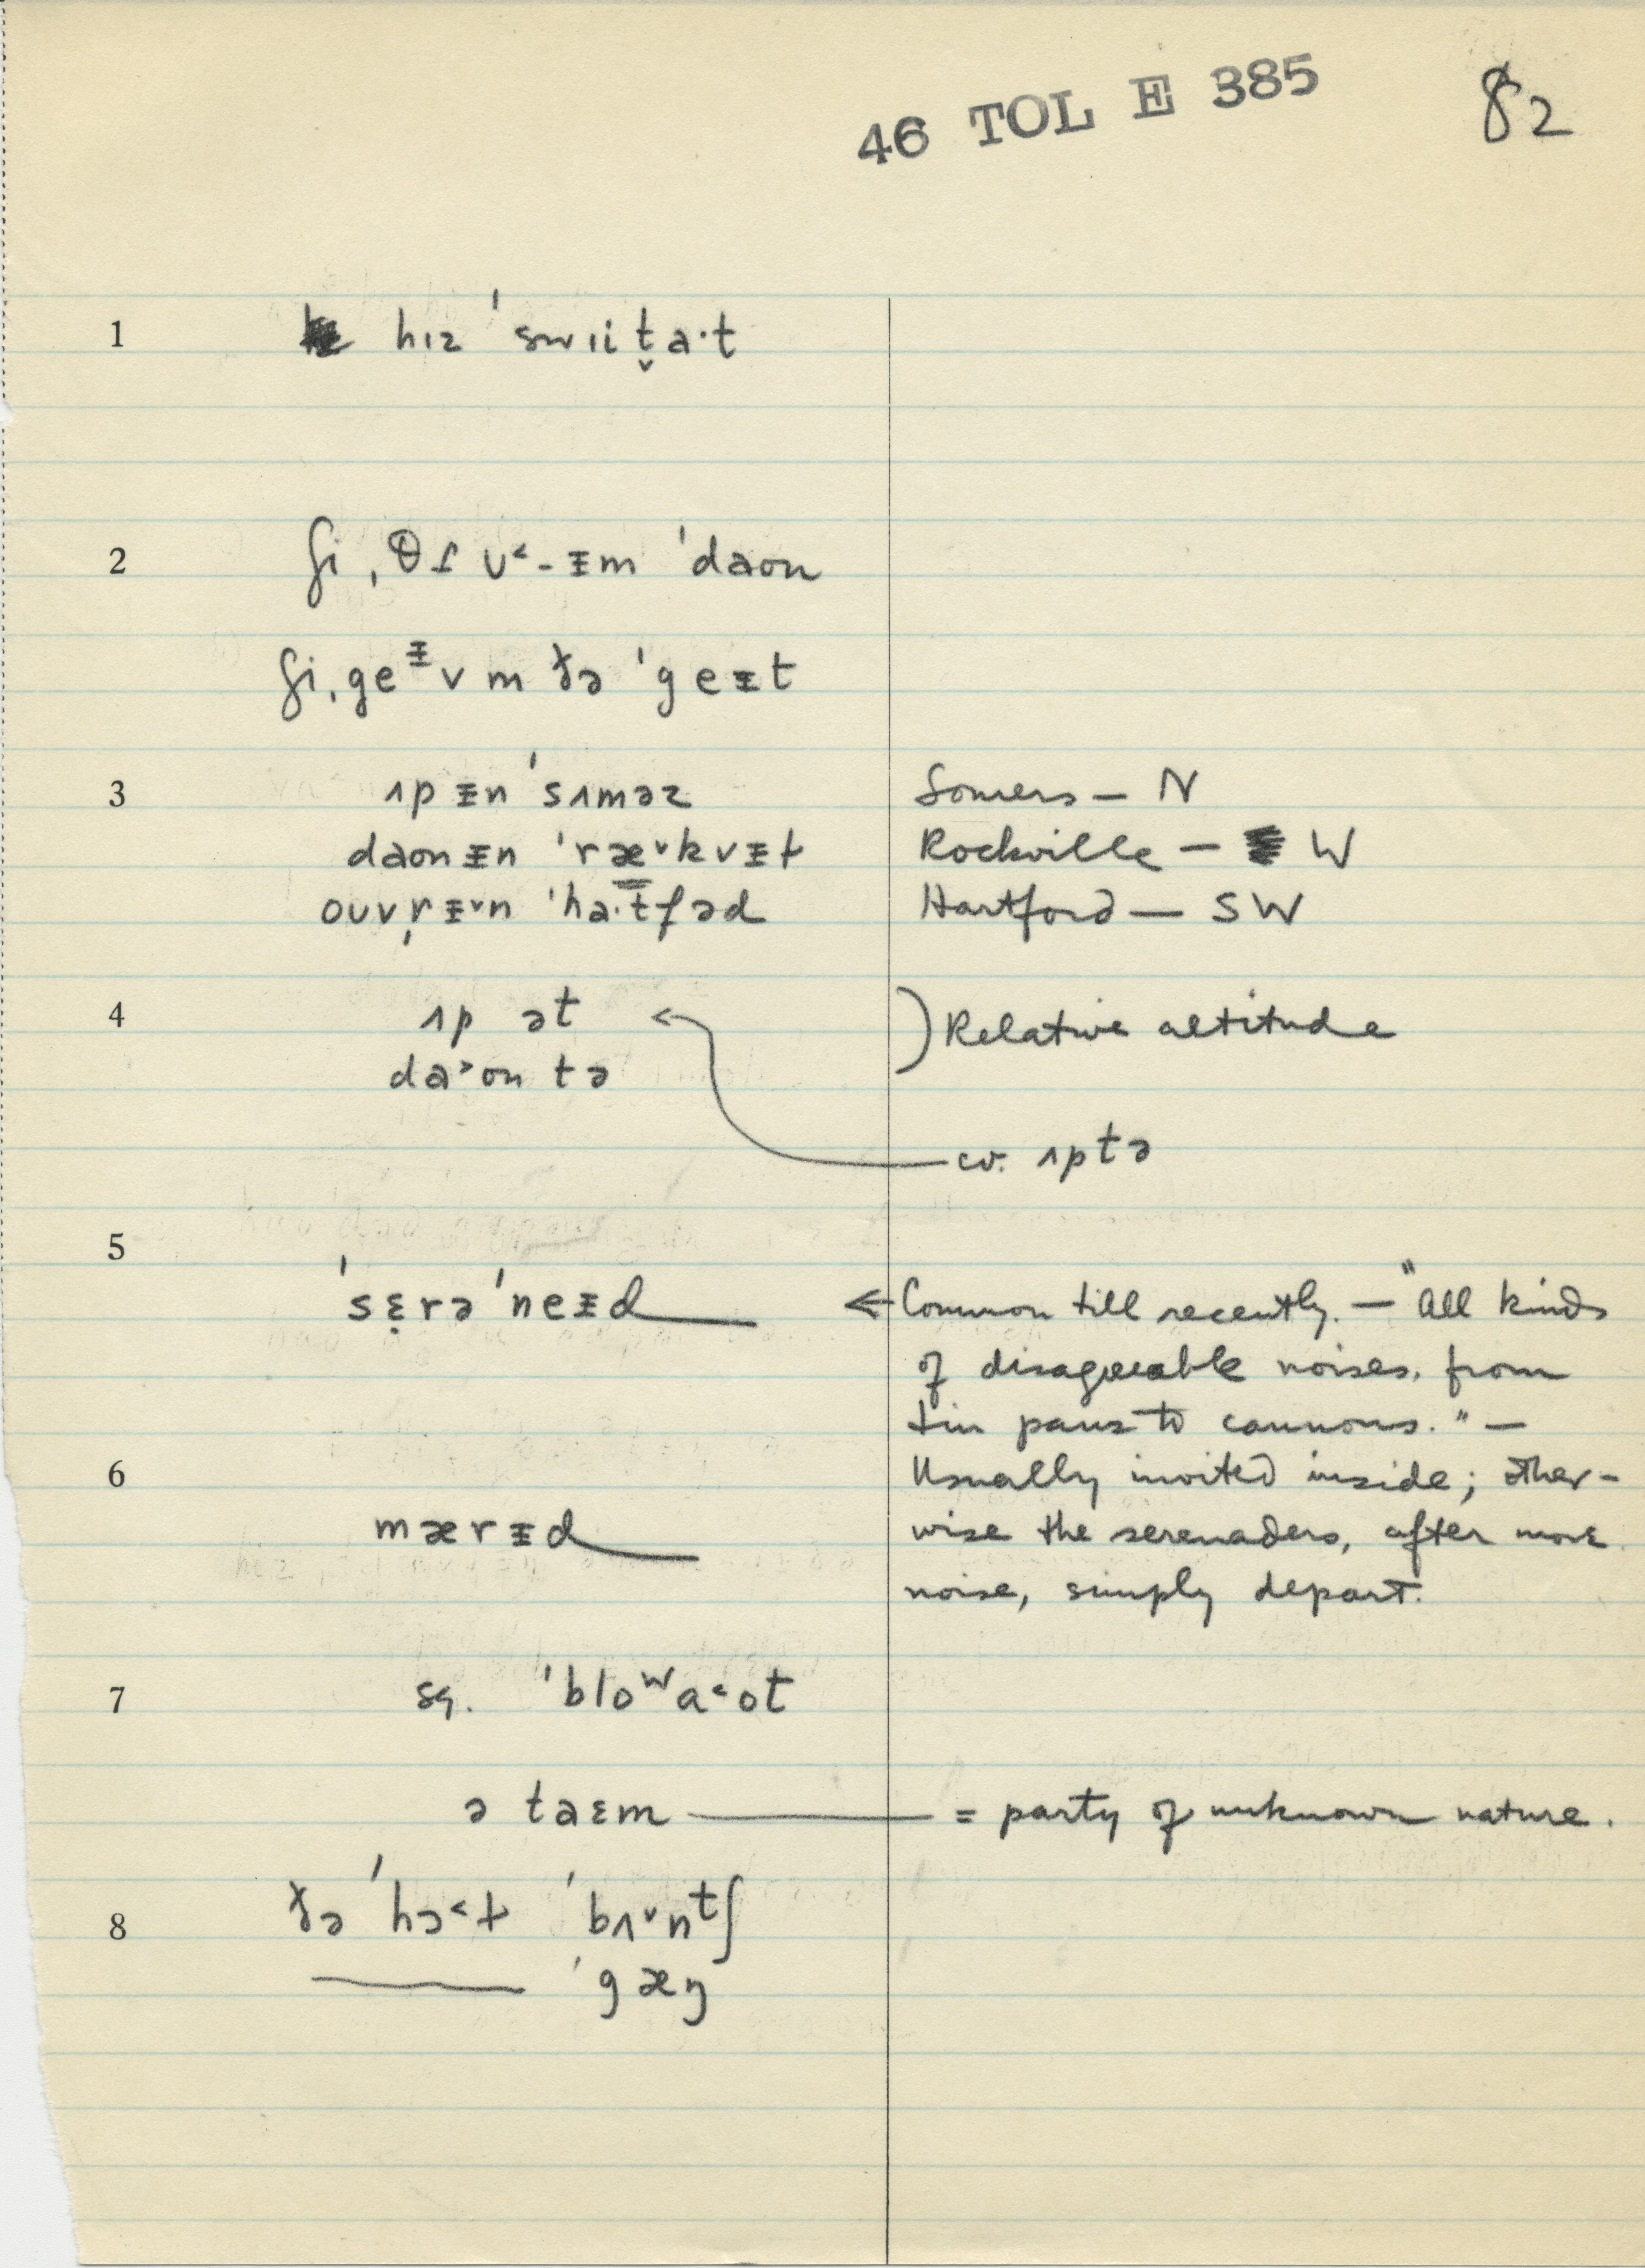 46 TOL E 385 82
1 hɪz ˈswɪit̬a·t
2 ʃi ˌθɪ ʊ˂-ᵻm ˈdaon
ʃi ˌgeᵻv m ðə ˈgeɪt
3 ʌp ᵻn ˈsʌməz Somers — N
daon ᵻn ˈræ˅kvᵻɫ Rockville — W
ouvrᵻ˅n ˈha·tfəd Hartford — SW
4 ʌp ət ) Relative altitude
da˃on tə
cv. ʌptə
5
ˈsɛrəˈneᵻd ← Common till recently. — "All kinds
of disagreeable noises, from
tin pans to cannons." —
6 Usually invited inside; other-
mærᵻd wise the serenaders, after more
noise, simply depart.
7 sq. ˈbloʷa˂ot
ə taɛm = party of unknown nature.
8 ðə ˈhɔ˂ɫ ˈbʌ˅nᵗʃ
ˈgæŋ